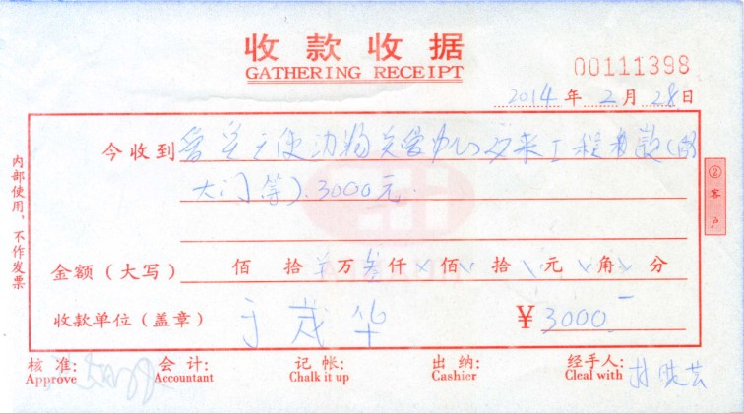 收款收据
GATHERING RECEIPT
00111398
2014年2月28日
今收到 天使动物关爱中心 工程 款(
大门等).3000元.
金额(大写) 佰 拾 万叁仟 佰 拾 元 角 分
收款单位(盖章) 于茂华 ¥3000
核准: 会计: 记帐: 出纳: 经手人:
Approve Accountant Chalk it up Cashier Cleal with
内部使用,不作发票
②客户